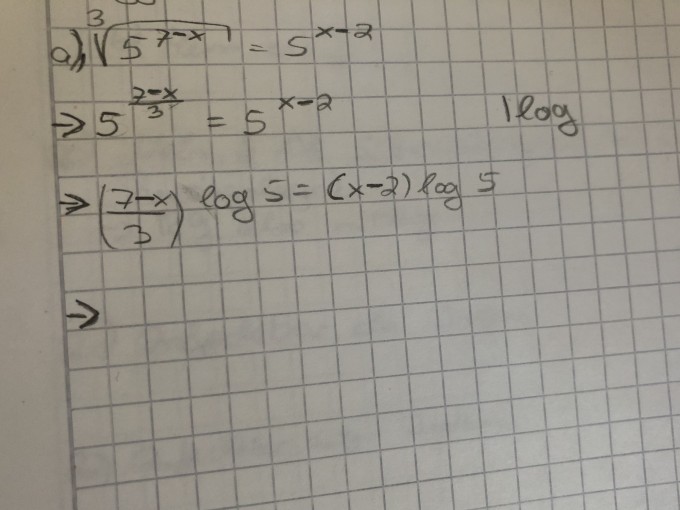 a), ∛(5^(7-x)) = 5^(x-2)
⇒ 5^((7-x)/3) = 5^(x-2) | log
⇒ ((7-x)/3) log 5 = (x-2) log 5
⇒